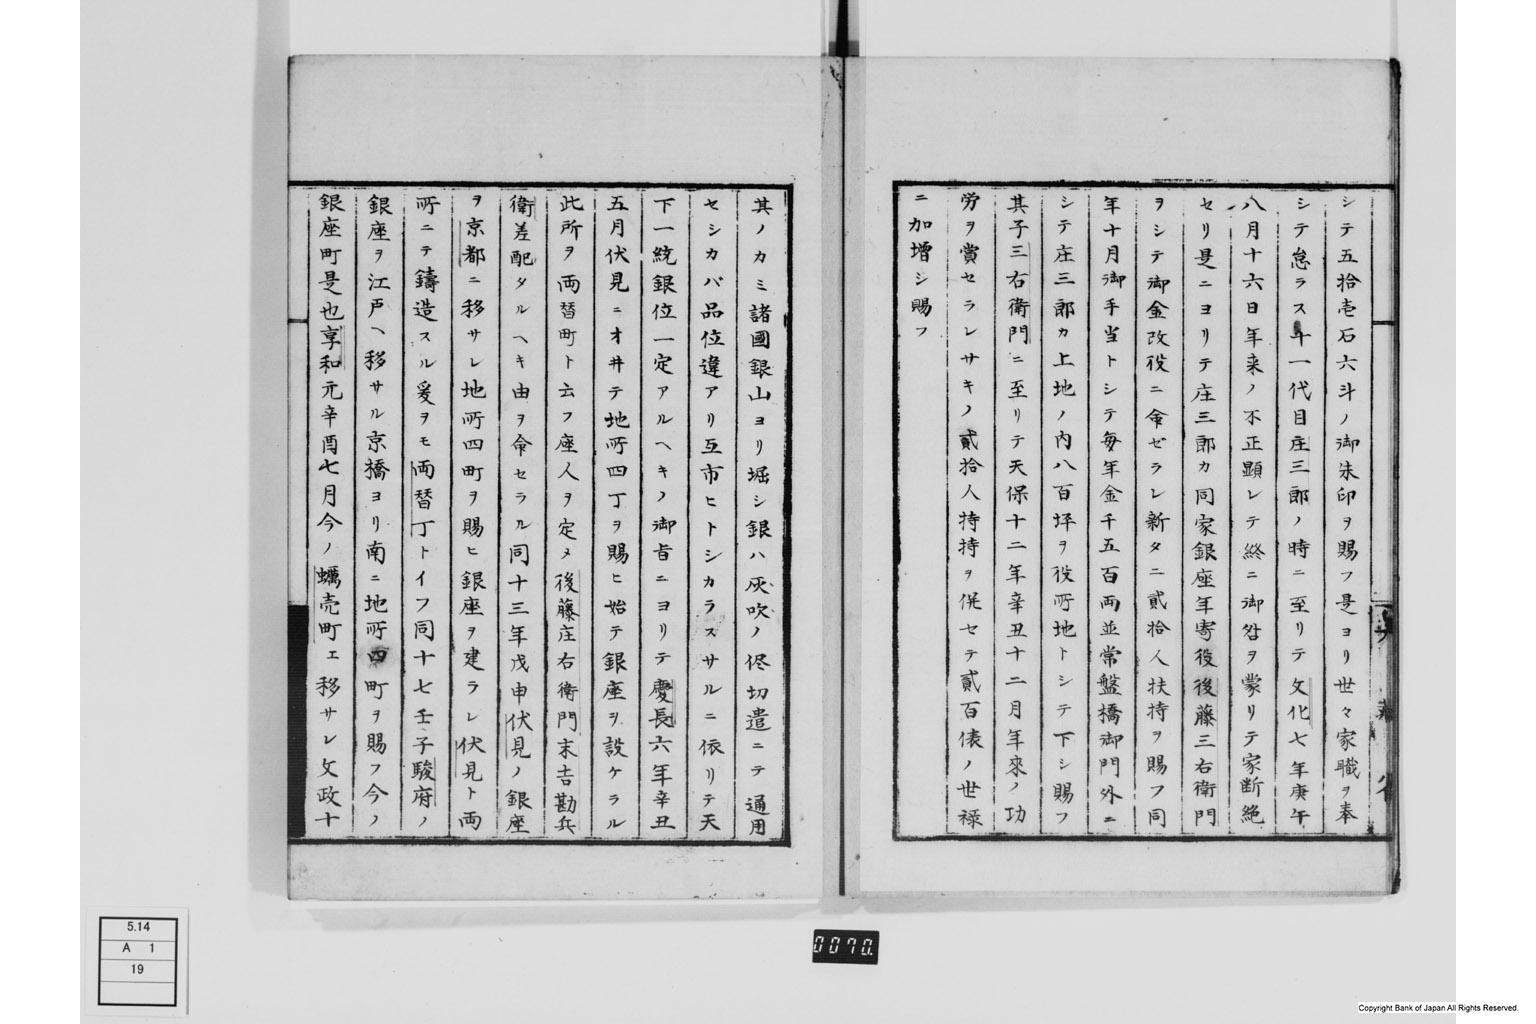 シテ五拾壱石六斗ノ御朱印ヲ賜フ是ヨリ世々家職ヲ奉
シテ怠ラス十一代目庄三郎ノ時ニ至リテ文化七年庚午
八月十六日年来ノ不正顕レテ終ニ御咎ヲ蒙リテ家断絶
セリ是ニヨリテ庄三郎カ同家銀座年寄役後藤三右衛門
ヲシテ御金改役ニ命ゼラレ新タニ貮拾人扶持ヲ賜フ同
年十月御手当トシテ毎年金千五百両並常盤橋御門外ニ
シテ庄三郎カ上地ノ内八百坪ヲ役所地トシテ下シ賜フ
其子三右衛門ニ至リテ天保十二年辛丑十二月年來ノ功
労ヲ賞セラレサキノ貮拾人持持ヲ併セテ貮百俵ノ世禄
ニ加増シ賜フ
其ノカミ諸國銀山ヨリ堀シ銀ハ灰吹ノ侭切遣ニテ通用
セシカバ品位違アリ互市ヒトシカラスサルニ依リテ天
下一統銀位一定アルヘキノ御旨ニヨリテ慶長六年辛丑
五月伏見ニオ井テ地所四丁ヲ賜ヒ始テ銀座ヲ設ケラル
此所ヲ両替町ト云フ座人ヲ定メ後藤庄右衛門末吉勘兵
衛差配タルヘキ由ヲ命セラル同十三年戊申伏見ノ銀座
ヲ京都ニ移サレ地所四町ヲ賜ヒ銀座ヲ建ラレ伏見ト両
所ニテ鑄造スル爰ヲモ両替丁トイフ同十七壬子駿府ノ
銀座ヲ江戸ヘ移サル京橋ヨリ南ニ地所四町ヲ賜フ今ノ
銀座町是也享和元辛酉七月今ノ蠣売町エ移サレ文政十
5.14
A 1
19
0070.
Copyright Bank of Japan All Rights Reserved.